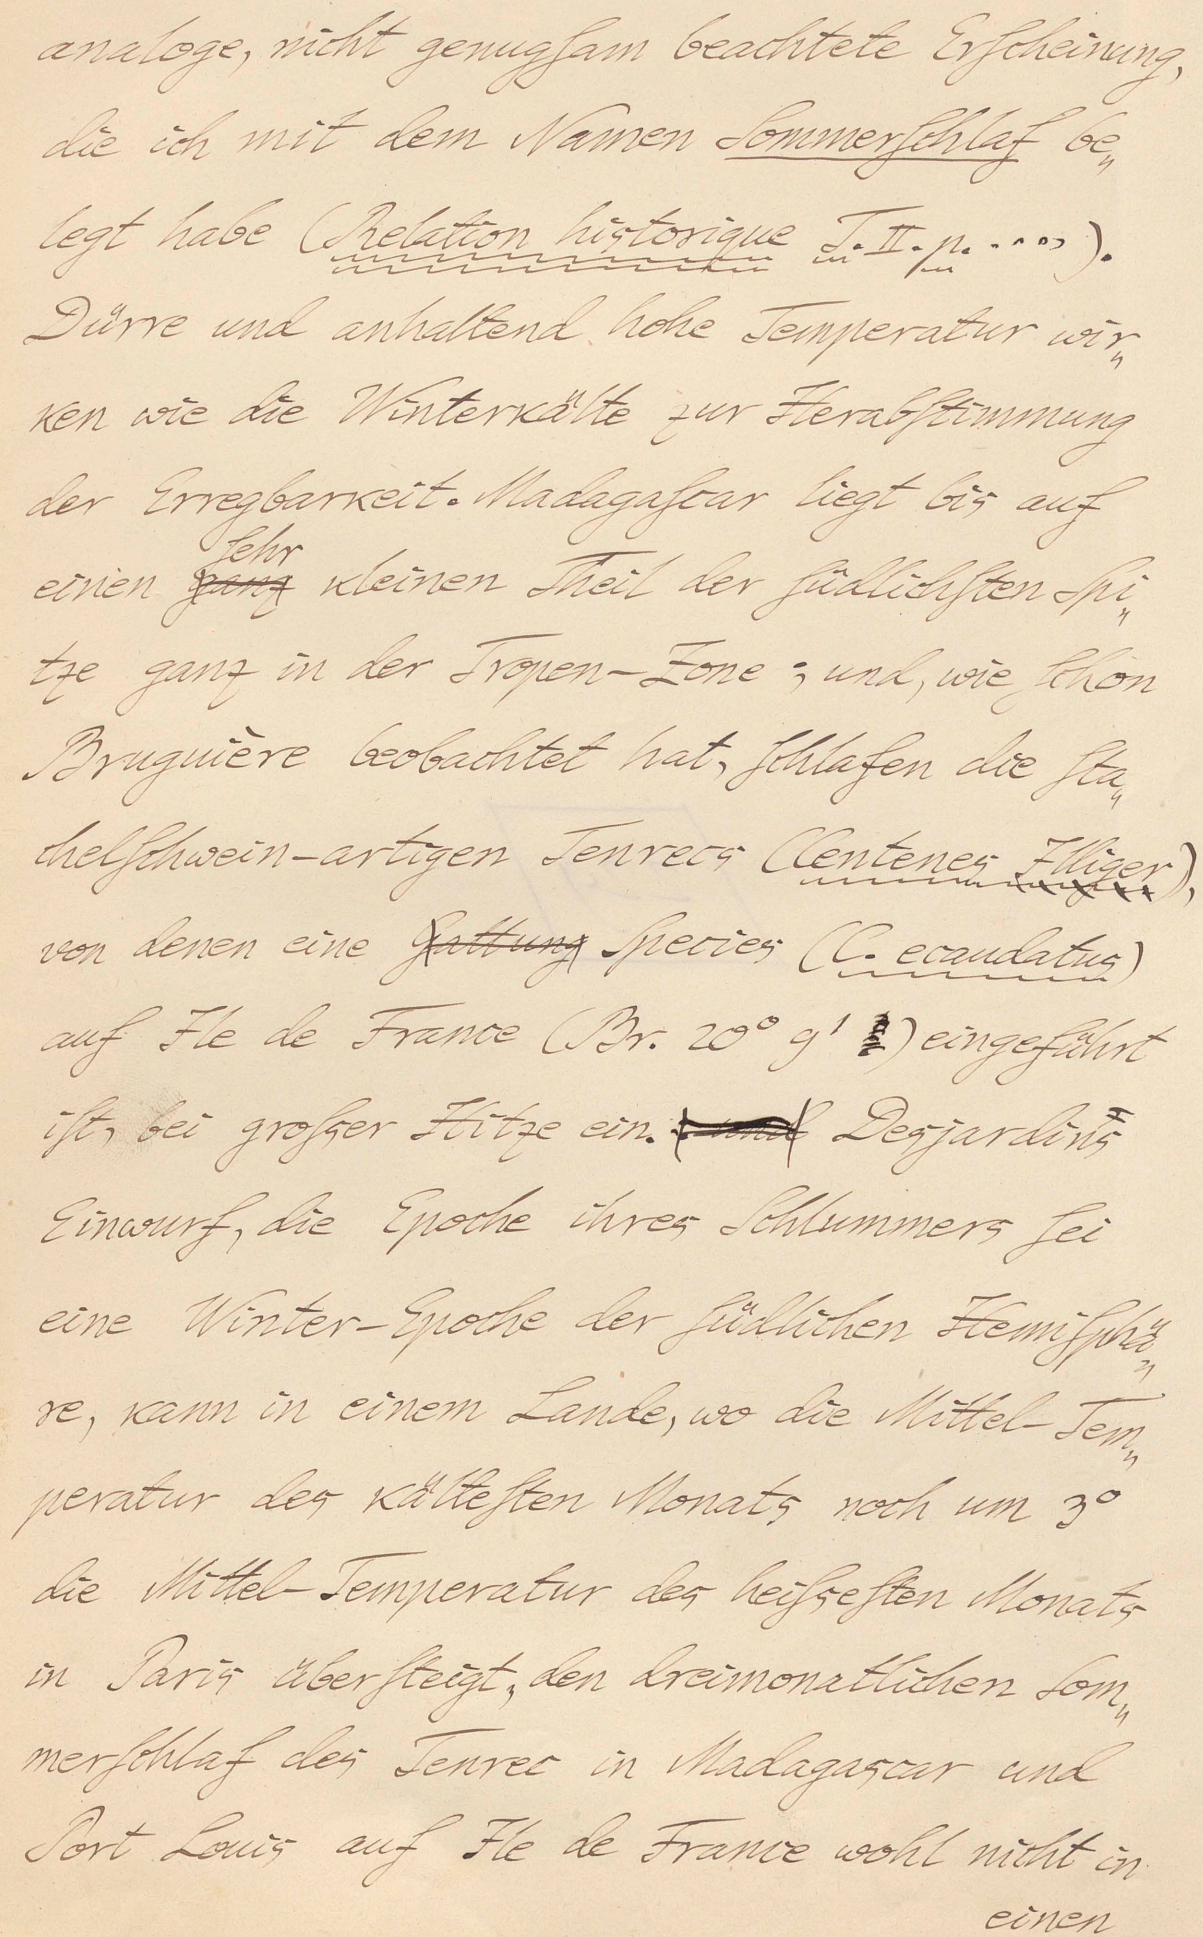 analoge, nicht genugſam beachtete Erſcheinung,
die ich mit dem Namen Sommerſchlaf be„
legt habe (Relation historique T. II. p. .....).
Dürre und anhaltend hohe Temperatur wir„
ken wie die Winterkälte zur Herabſtimmung
der Erregbarkeit. Madagaſcar liegt bis auf
ſehr
einen ganz kleinen Theil der ſüdlichſten Spi„
tze ganz in der Tropen-Zone; und, wie ſchon
Bruguière beobachtet hat, ſchlafen die ſta„
chelſchwein-artigen Tenrecs (Centenes Illiger),
von denen eine Gattung Species (C. ecaudatus)
auf Ile de France (Br. 20° 9') eingeführt
iſt, bei groſser Hitze ein. und Desjardins
Einwurf, die Epoche ihres Schlummers ſei
eine Winter-Epoche der ſüdlichen Hemiſphä„
re, kann in einem Lande, wo die Mittel-Tem„
peratur des kälteſten Monats noch um 3°
die Mittel-Temperatur des heiſseſten Monats
in Paris überſteigt, den dreimonatlichen Som„
merſchlaf des Tenrec in Madagascar und
Port Louis auf Ile de France wohl nicht in
einen